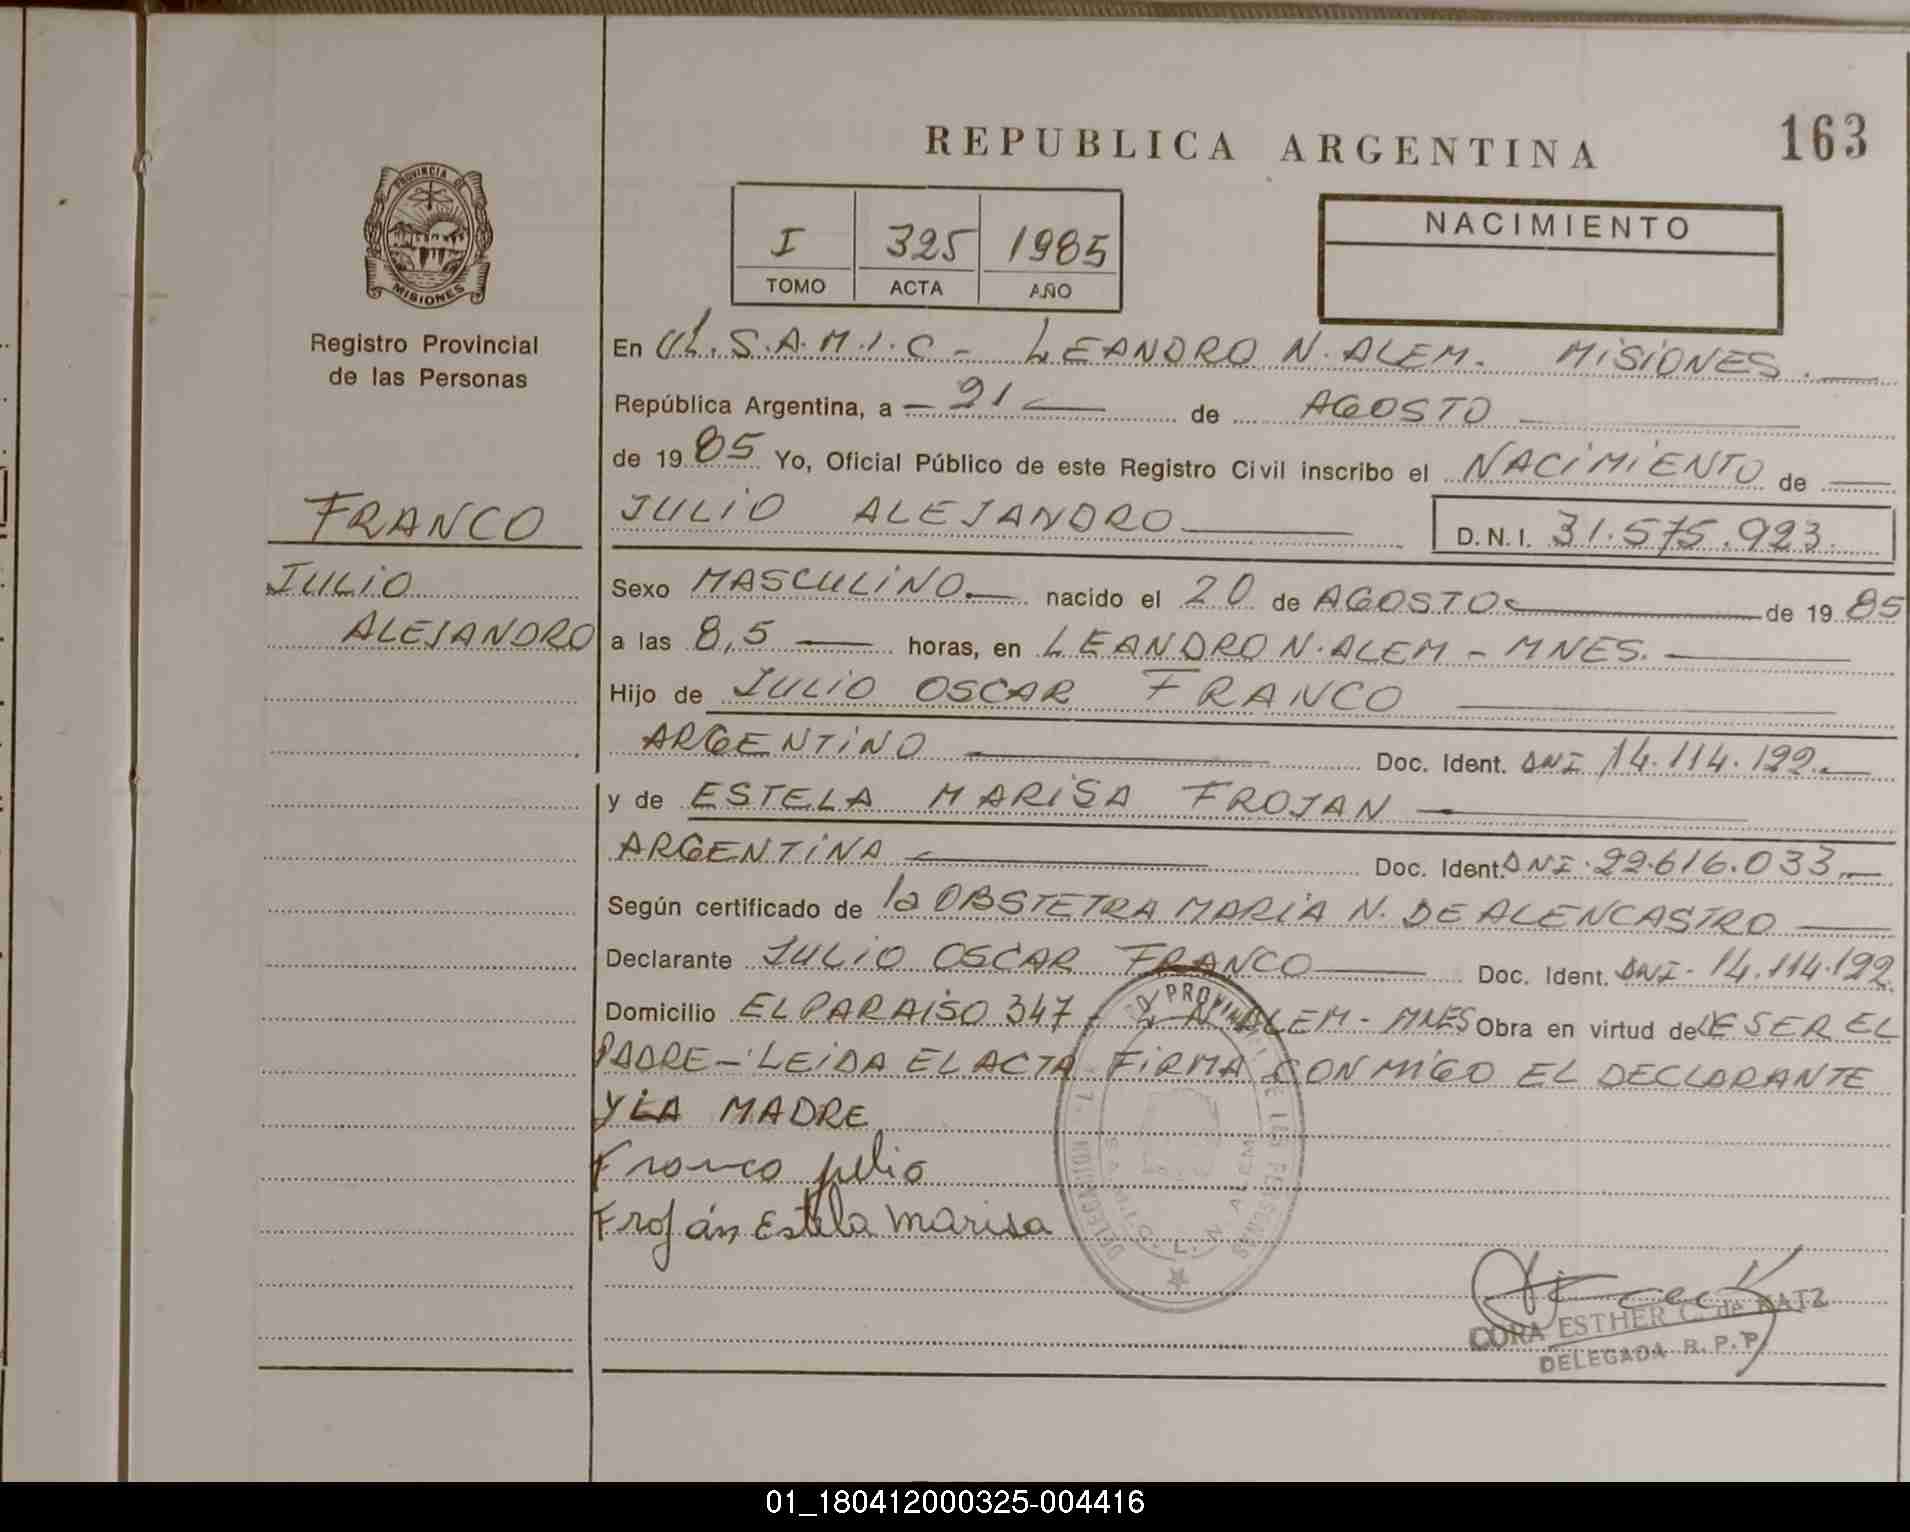 REPUBLICA ARGENTINA
163
PROVINCIA DE
MISIONES
Registro Provincial
de las Personas
I 325 1985
TOMO ACTA AÑO
NACIMIENTO
En S.A.M.I.C - LEANDRO N. ALEM. MISIONES.
República Argentina, a 21 de AGOSTO
de 1985 Yo, Oficial Público de este Registro Civil inscribo el NACIMIENTO de
FRANCO
JULIO ALEJANDRO
JULIO ALEJANDRO D.N.I. 31.575.923.
Sexo MASCULINO. nacido el 20 de AGOSTO de 1985
a las 8,5 horas, en LEANDRO N. ALEM - MNES.
Hijo de JULIO OSCAR FRANCO
ARGENTINO Doc. Ident. DNI 14.114.192.
y de ESTELA MARISA FROJAN
ARGENTINA Doc. Ident. DNI. 22.616.033.
Según certificado de la OBSTETRA MARIA N. DE ALENCASTRO
Declarante JULIO OSCAR FRANCO Doc. Ident. DNI- 14.114.192
Domicilio EL PARAISO 347 - L N ALEM - MNES Obra en virtud de DE SER EL
PADRE - LEIDA EL ACTA FIRMA CONMIGO EL DECLARANTE
Y LA MADRE
Franco Julio
Froján Estela Marisa
CORA ESTHER C. de KATZ
DELEGADA R.P.P.
01_180412000325-004416